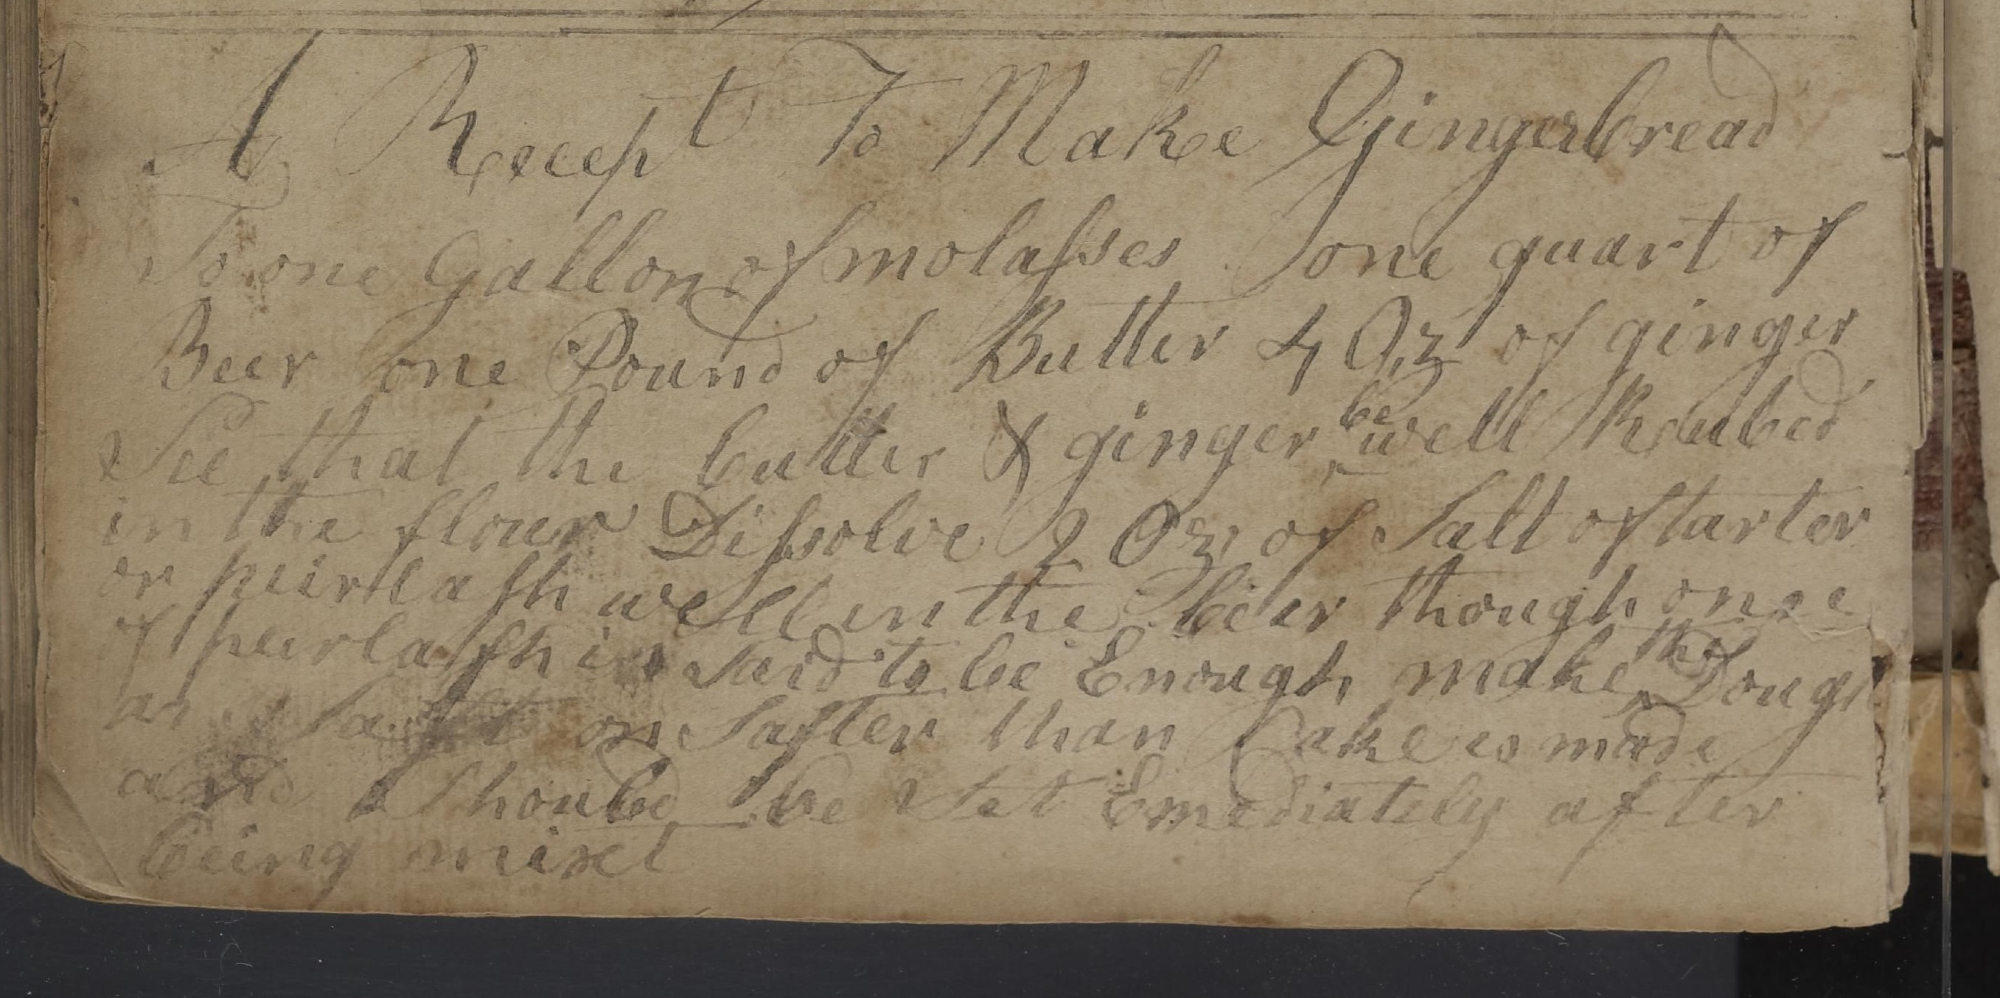 A Recept To Make Gingerbread
To one Gallon of molasses one quart of
Beer one Pound of Butter 4 Oz of ginger
See that the butter & ginger be well Roubed
in the flour Dissolve 2 Oz of Salt of tarter
or peirlash well in the beer though one
of peirlash is said to be Enough make the Dough
as on Safter than Cake is made
and Should be Set Emediately after
being mixt